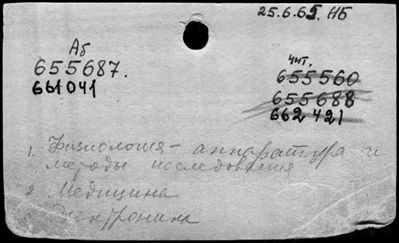 25.6.65. НБ
Аб
655687.
661041
чит.
655560
655688
662421
1. Физиология - аппаратура и
методы исследования
2. Медицина
Электроника